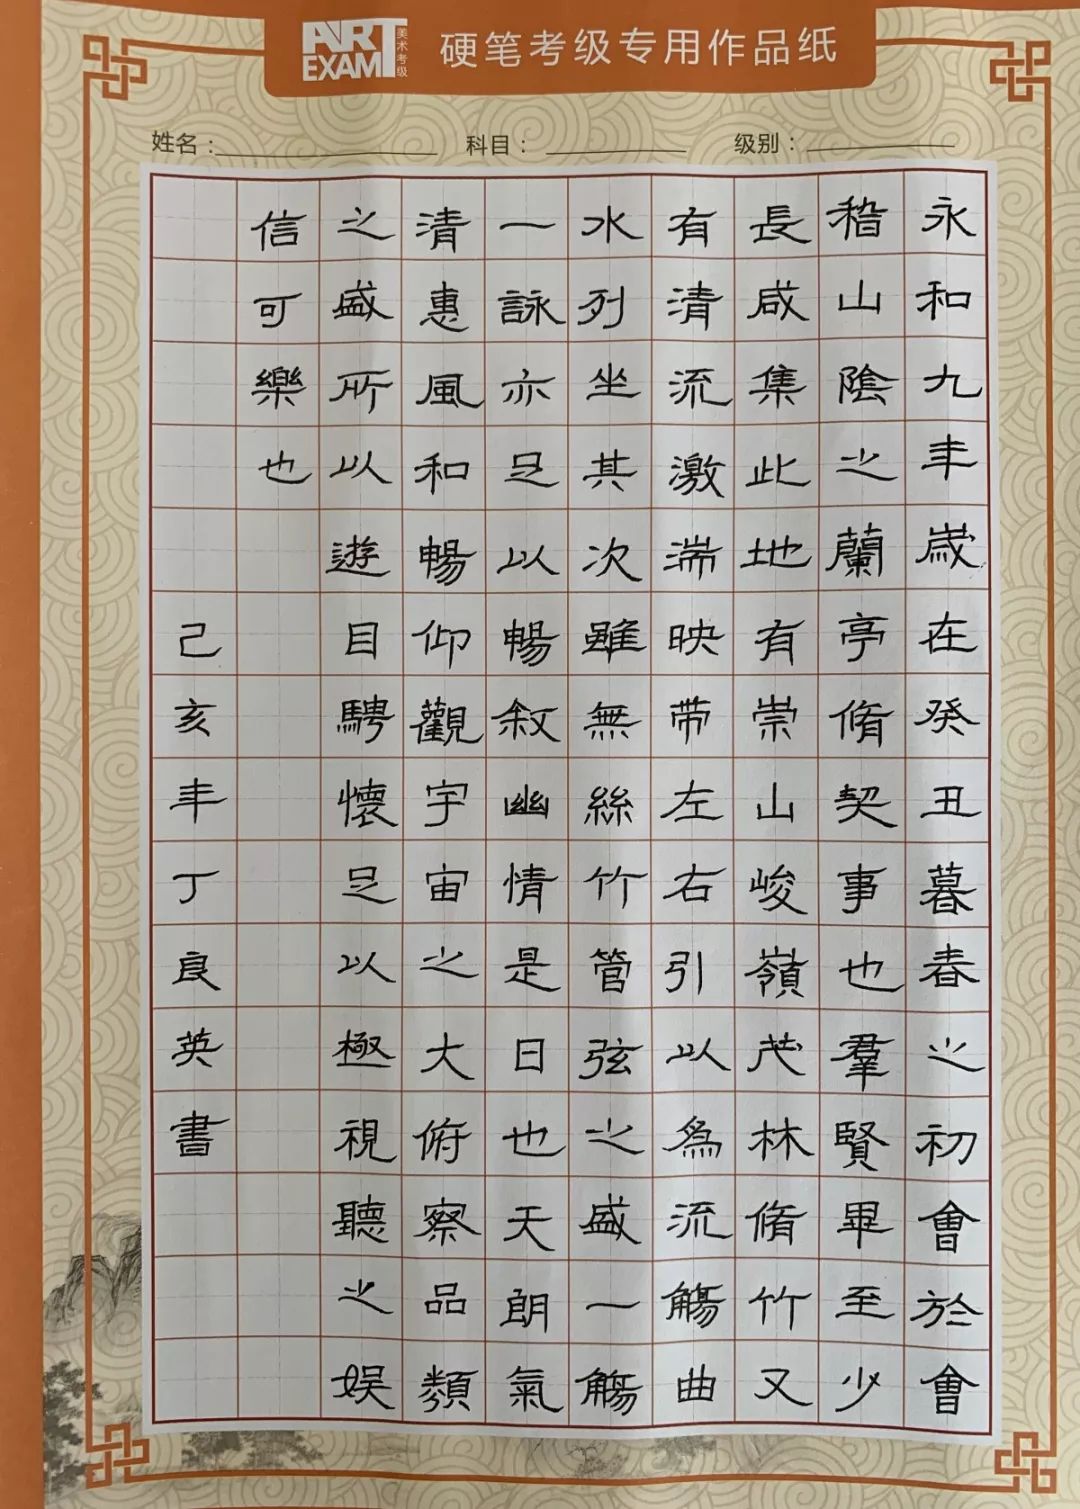 ART EXAM 美术考级
硬笔考级专用作品纸
姓名： 科目： 级别：
永和九年歲在癸丑暮春之初會於會
稽山陰之蘭亭脩契事也羣賢畢至少
長咸集此地有崇山峻嶺茂林脩竹又
有清流激湍映带左右引以為流觴曲
水列坐其次雖無絲竹管弦之盛一觴
一詠亦足以暢叙幽情是日也天朗氣
清惠風和暢仰觀宇宙之大俯察品類
之盛所以遊目騁懷足以極視聽之娱
信可樂也
己亥年丁良英書